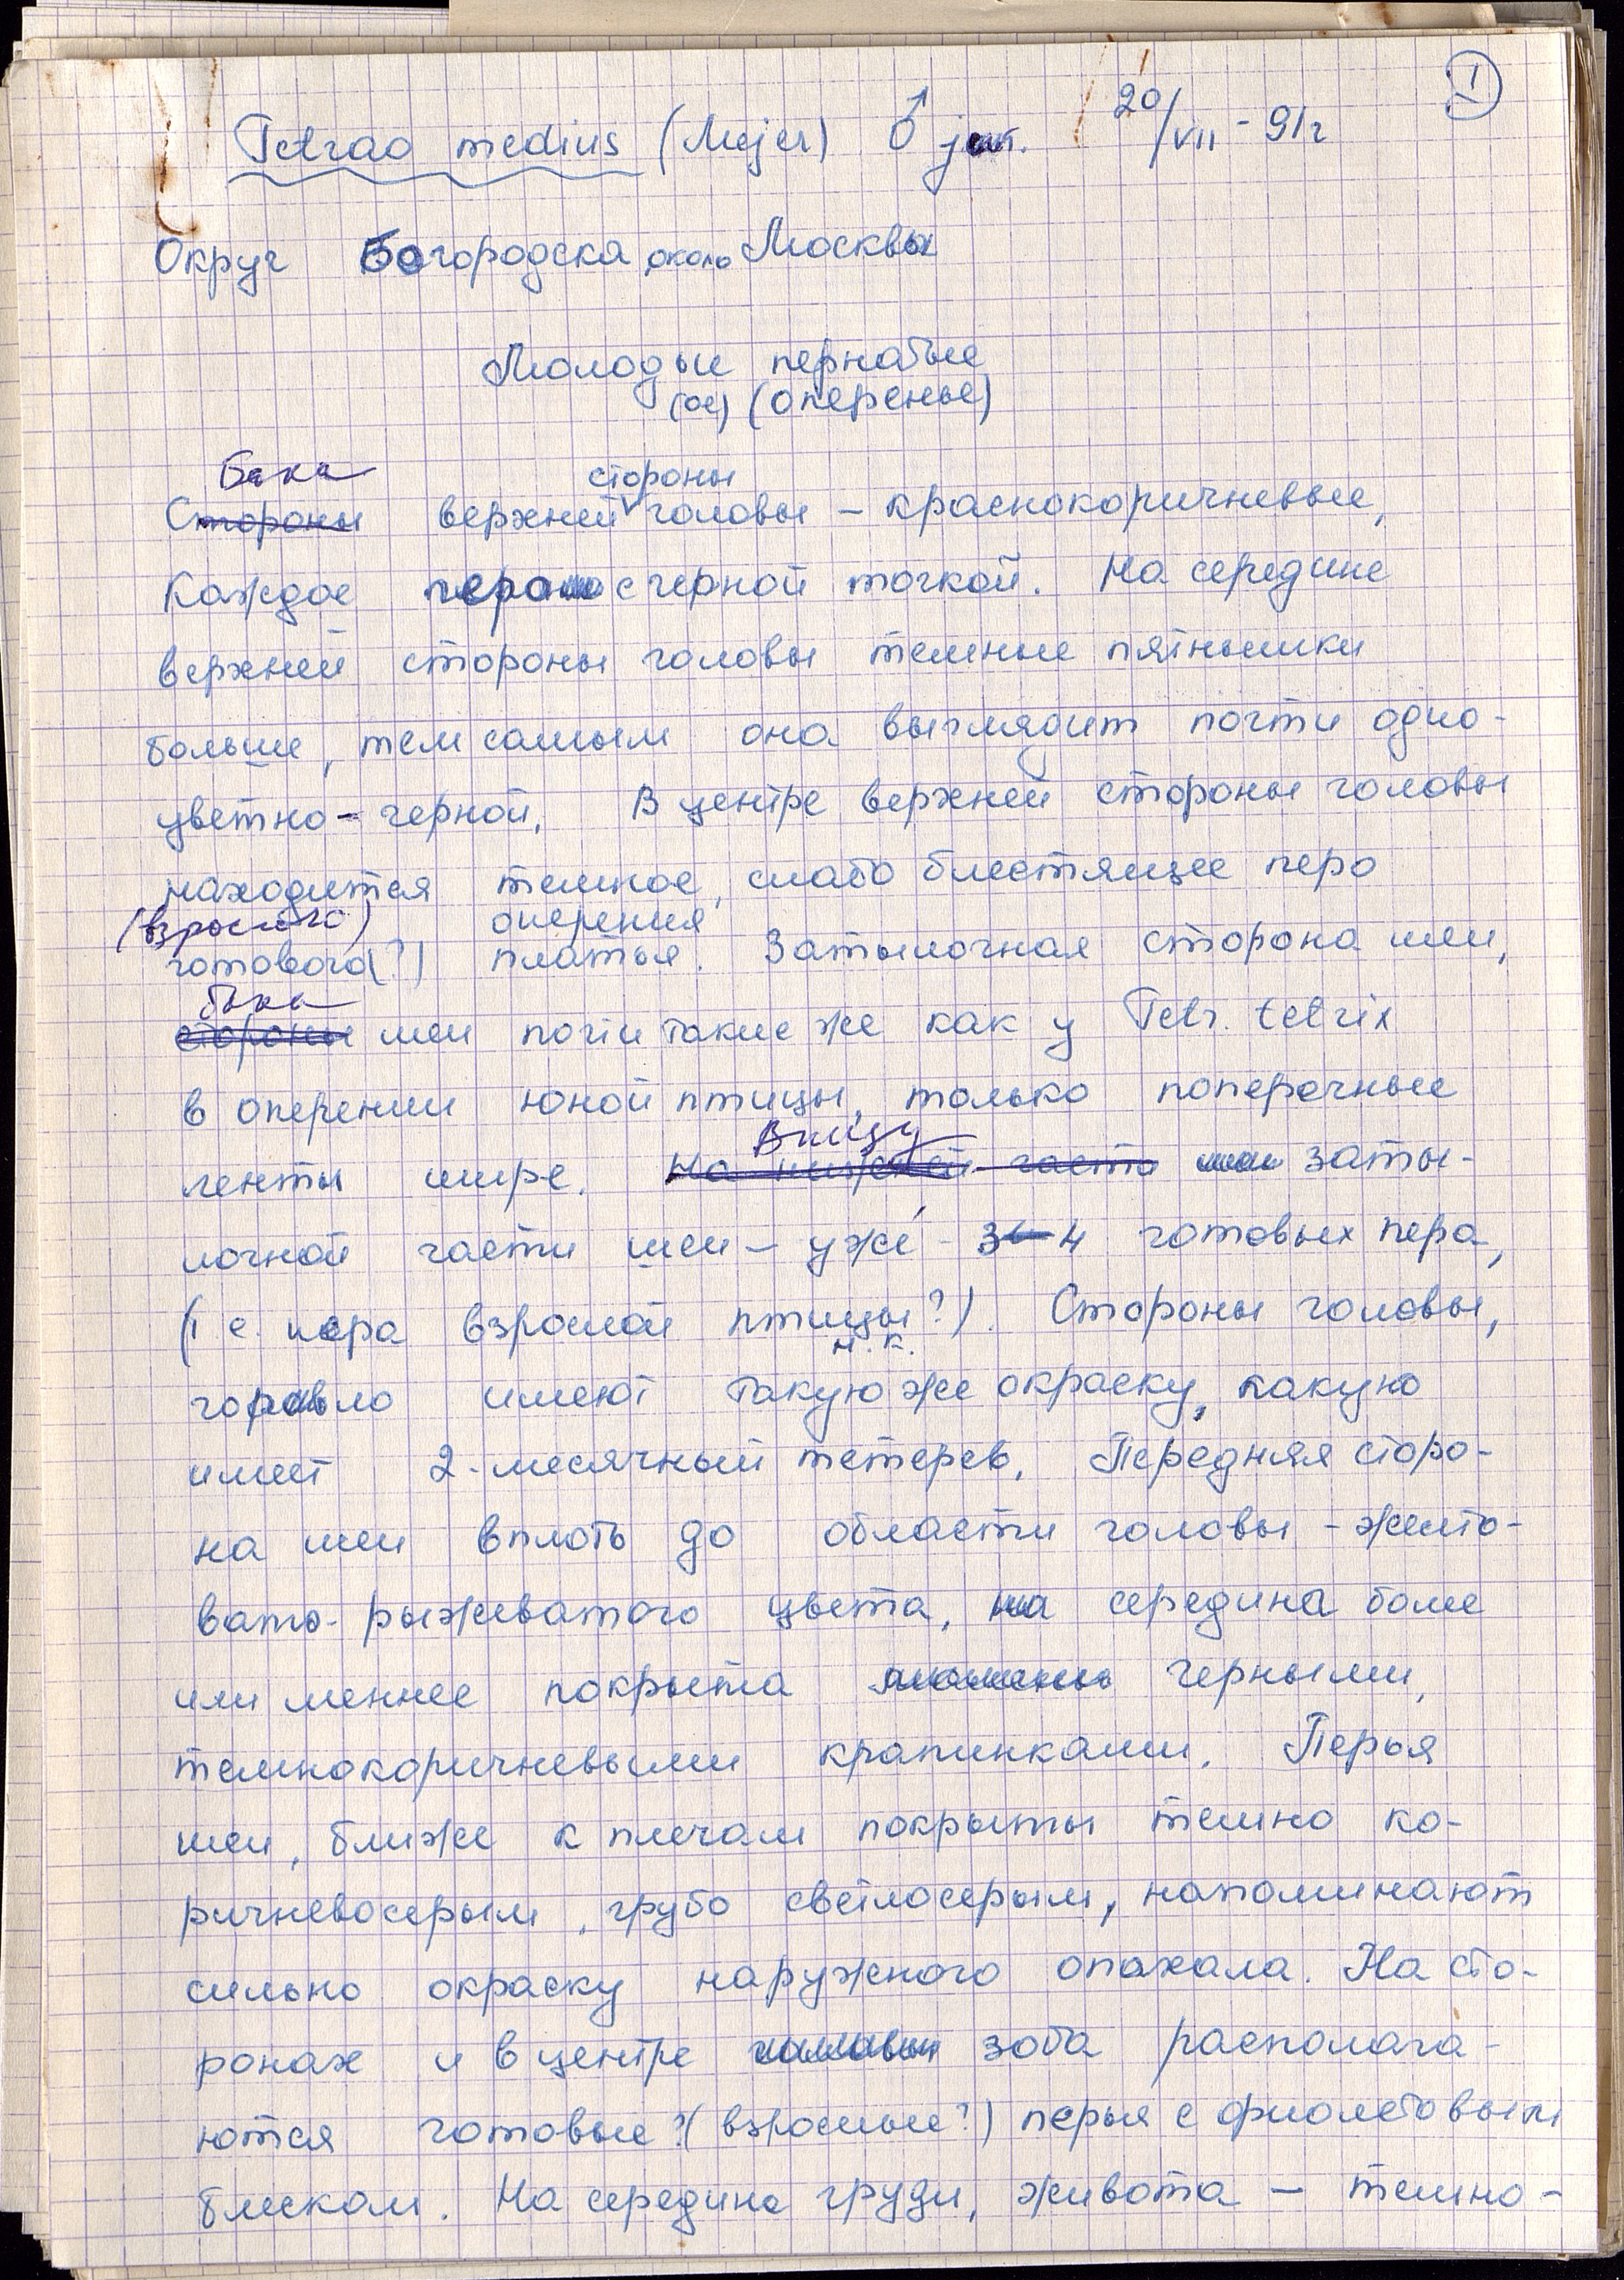 I
Tetrao medius (Mejer) ♂ juv. 20/VII - 91г
Округ Богородска около Москвы
Молодые пернатые
(ое) (оперенье)
Бока стороны
Стороны верхней головы – краснокоричневые,
Каждое перо с черной точкой. На середине
верхней стороны головы темные пятнышки
больше, тем самым она выглядит почти одно-
цветно-черной. В центре верхней стороны головы
находится темное, слабо блестящее перо
(взрослого) оперения
готового(?) платья. Затылочная сторона шеи,
бока
стороны шеи почти такие же как у Tetr. tetrix
в оперении юной птицы, только поперечные
Внизу
ленты шире. На нижней части шеи заты-
лочной части шеи – уже - 3-4 готовых пера,
(т е. пера взрослой птицы?). Стороны головы,
м. к.
горло имеют такую же окраску, какую
имеет 2-месячный тетерев. Передняя сторо-
на шеи вплоть до области головы - желто-
вато-рыжеватого цвета, середина более
или меннее покрыта черными,
темнокоричневыми крапинками. Перья
шеи, ближе к плечам покрыты темно ко-
ричневосерым, грубо светлосерым, напоминают
сильно окраску наружного опахала. На сто-
ронах и в центре головы зоба располага-
ются готовые?(взрослые?) перья с фиолетовым
блеском. На середине груди, живота – темно-